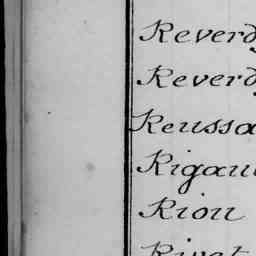 Reverdy
Reverdy
Reussa
Rigau
Rion
Rivet